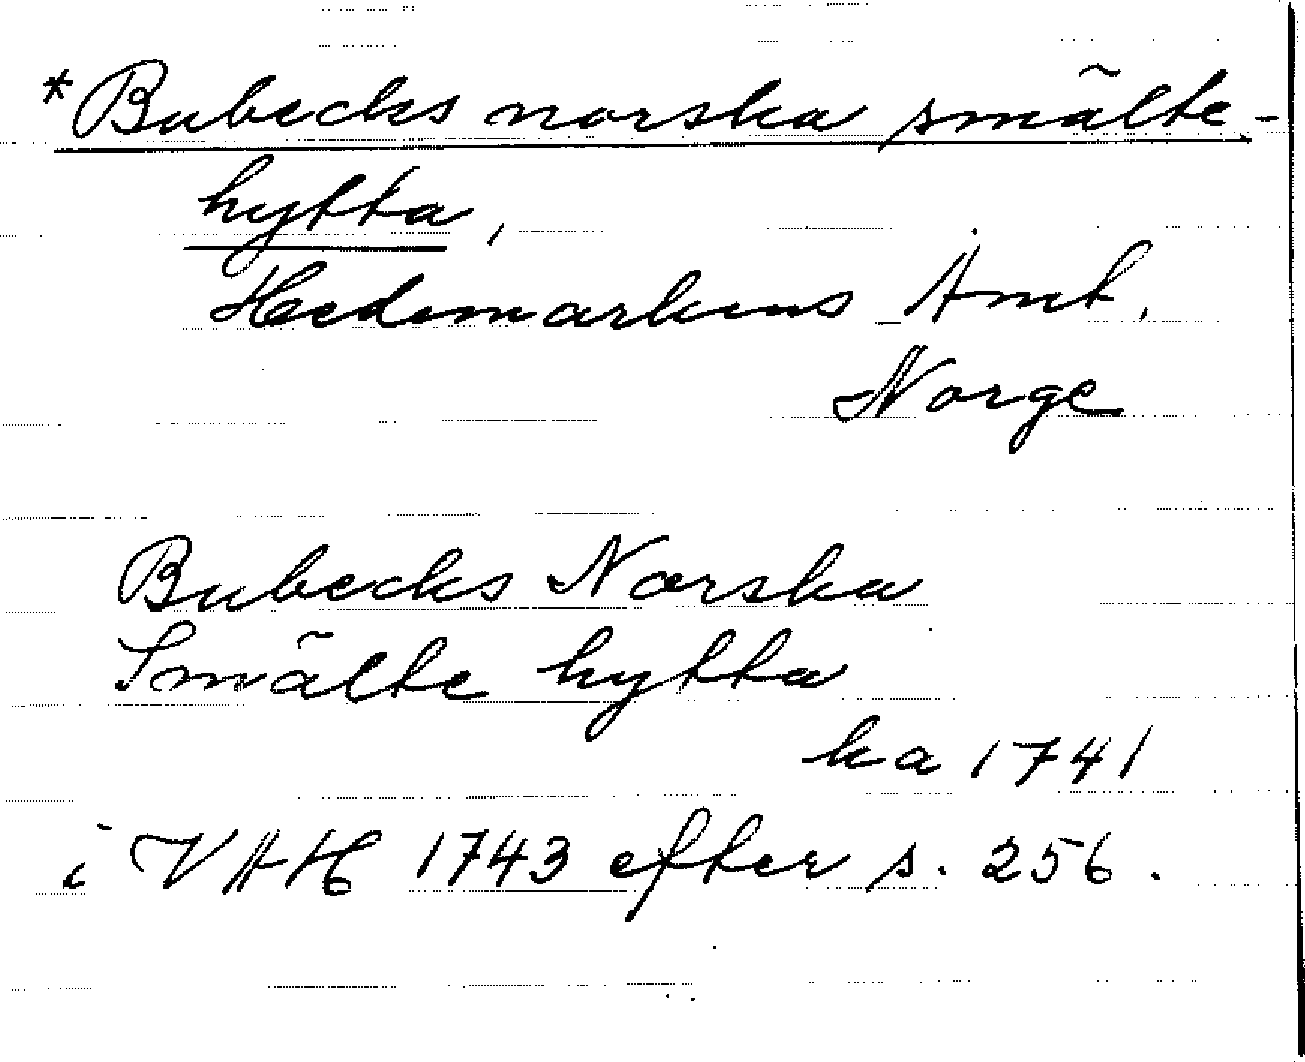 * Bubecks norska smälte-
hytta,
Hedemarkens Amt,
Norge
Bubecks Norska
Smälte hytta
ka 1741
i VAH 1743 efter s. 256.